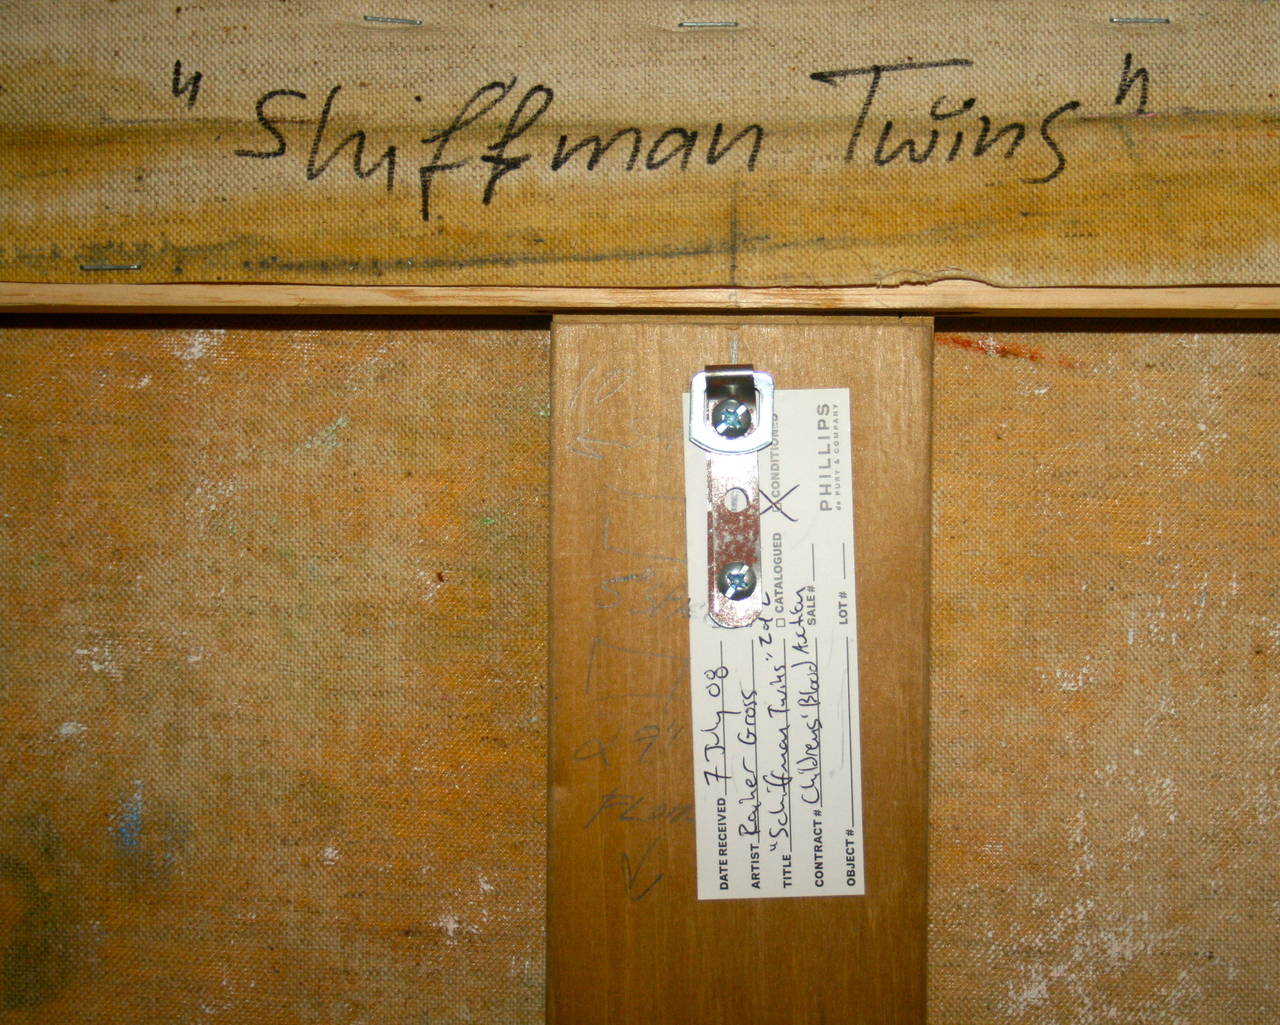 "Shiffman Twins"
DATE RECEIVED 7 July 08
ARTIST Rainer Gross
TITLE "Schiffman Twins"
CONTRACT # Childrens' Blood Auction
OBJECT #
CATALOGUED
CONDITIONED
SALE #
LOT #
PHILLIPS
de PURY & COMPANY